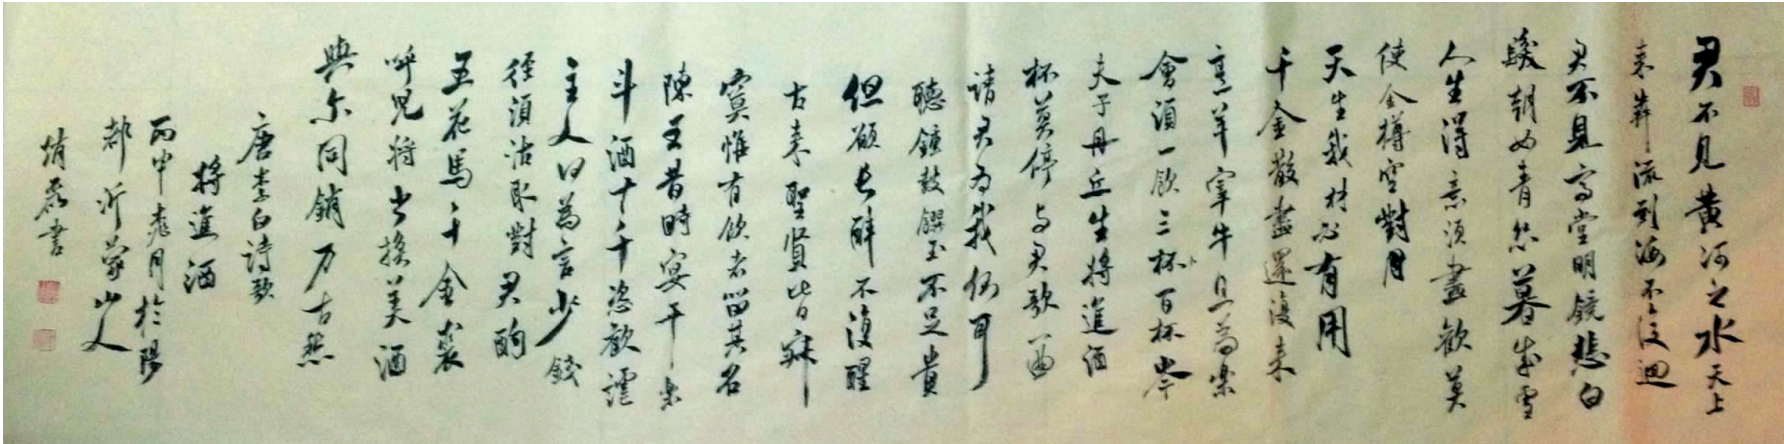 君不見黄河之水天上
来奔流到海不復迴
君不見高堂明鏡悲白
髮朝如青絲暮成雪
人生得意須盡歡莫
使金樽空對月
天生我材必有用
千金散盡還復来
烹羊宰牛且為樂
會須一飲三杯百杯岑
夫子丹丘生將進酒
杯莫停与君歌一曲
請君為我側耳
聽鐘鼓饌玉不足貴
但願長醉不復醒
古来聖賢皆寂
寞惟有飲者留其名
陳王昔時宴平樂
斗酒十千恣歡謔
主人何為言少錢
徑須沽取對君酌
五花馬千金裘
呼兒將出換美酒
與尔同銷万古愁
唐李白詩歌
將進酒
丙申桃月於陽
都沂蒙山人
書